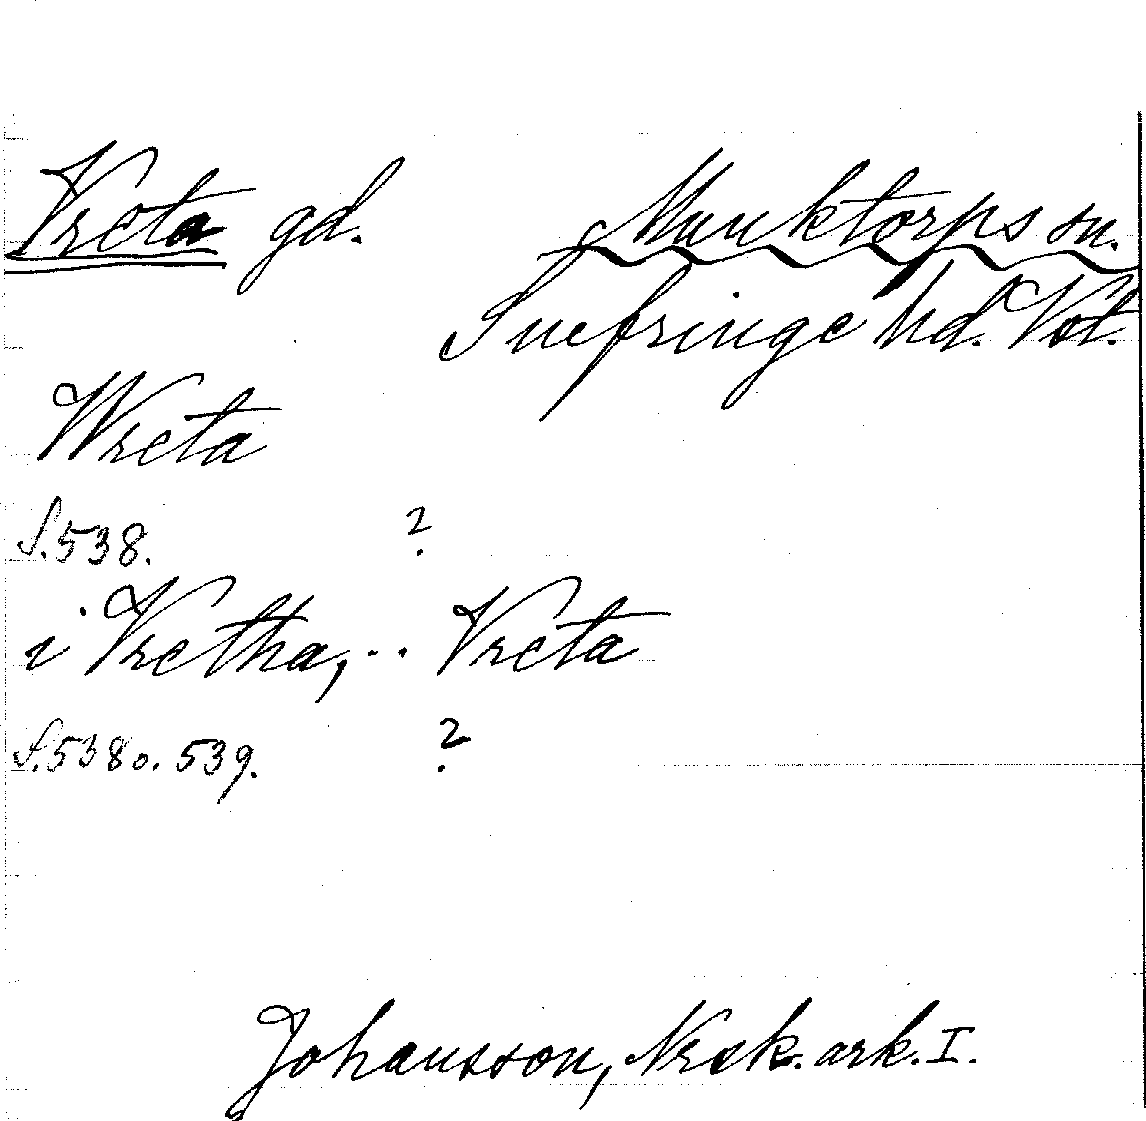 Vreta gd. Munktorps sn.
Snefringe hd. Vstl.
Wreta
S. 538. ?
i Vretha, .. Vreta
S. 538 o. 539. ?
Johansson, Nrsk. ark. I.